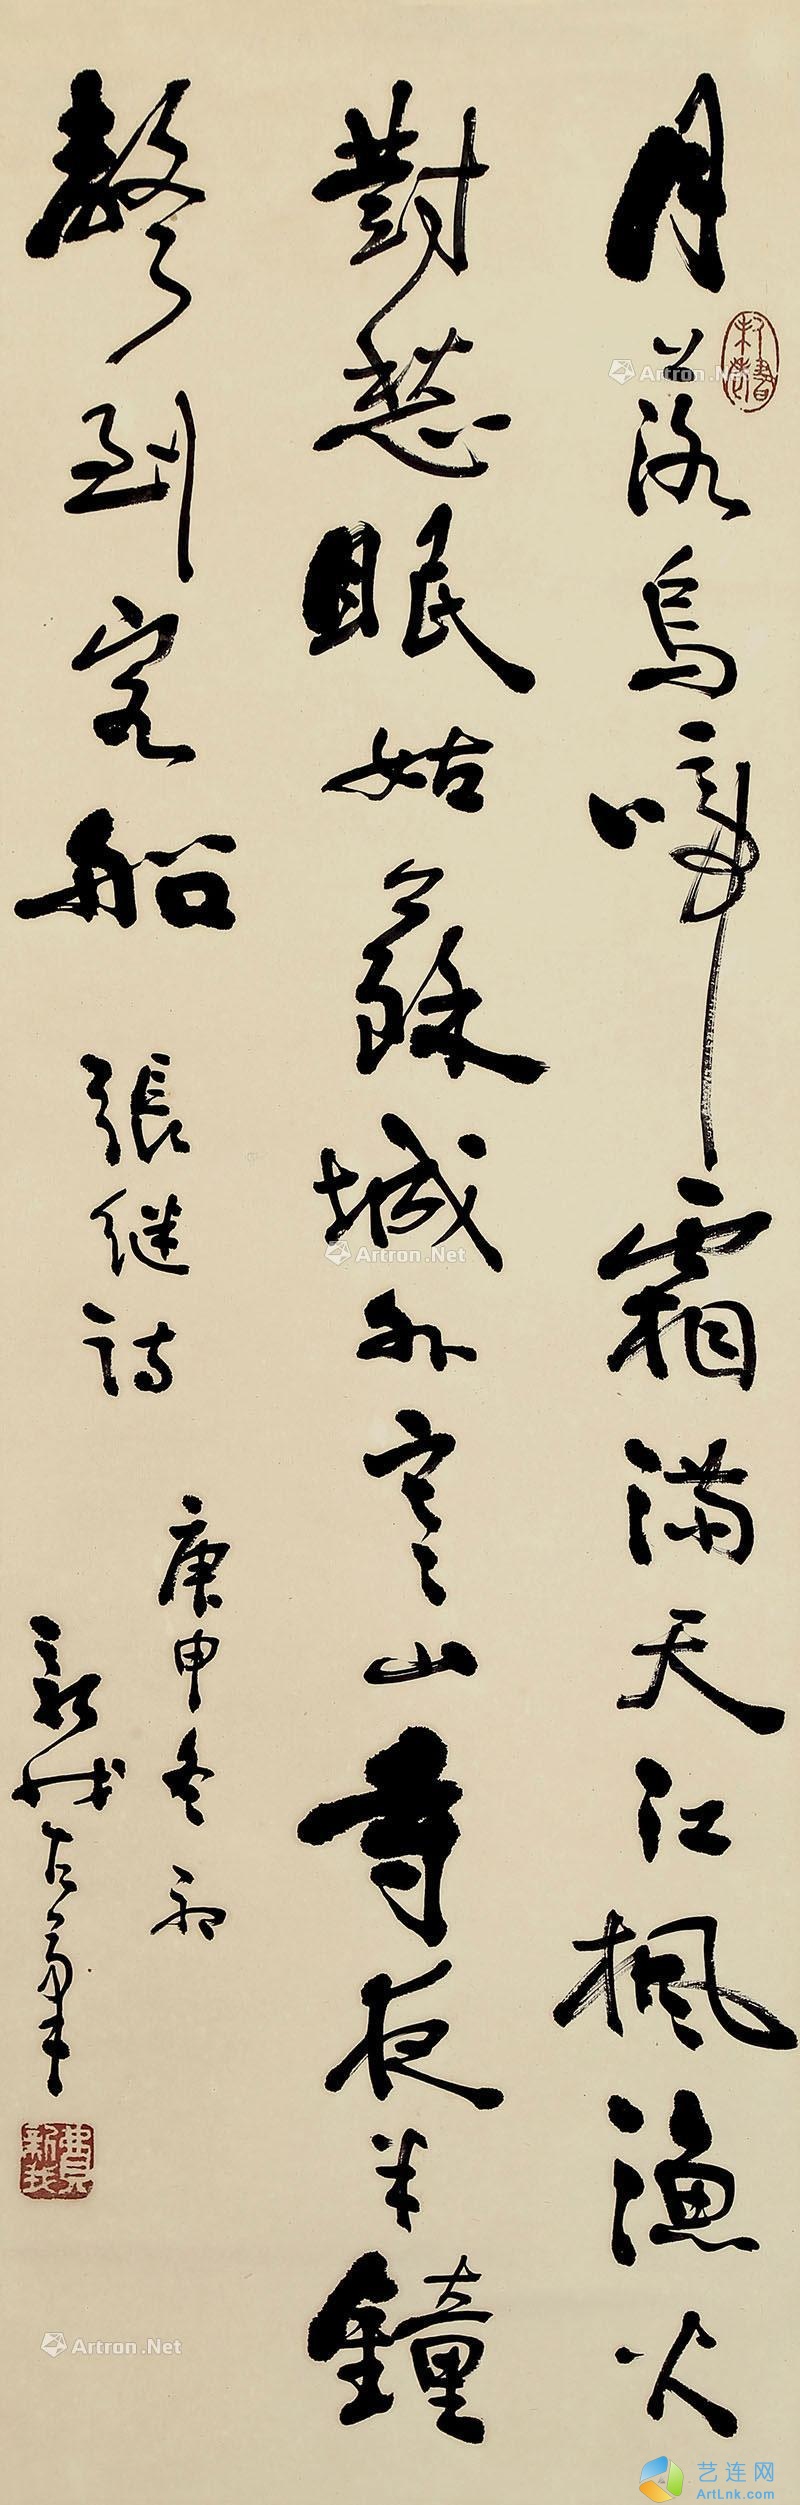 月落烏啼霜滿天江楓漁火
對愁眠姑蘇城外寒山寺夜半鐘
聲到客船 張继詩
庚申冬初
新我左筆
費新我
Artron.Net
Artron.Net
Artron.Net
Artron.Net
艺连网
ArtLnk.com